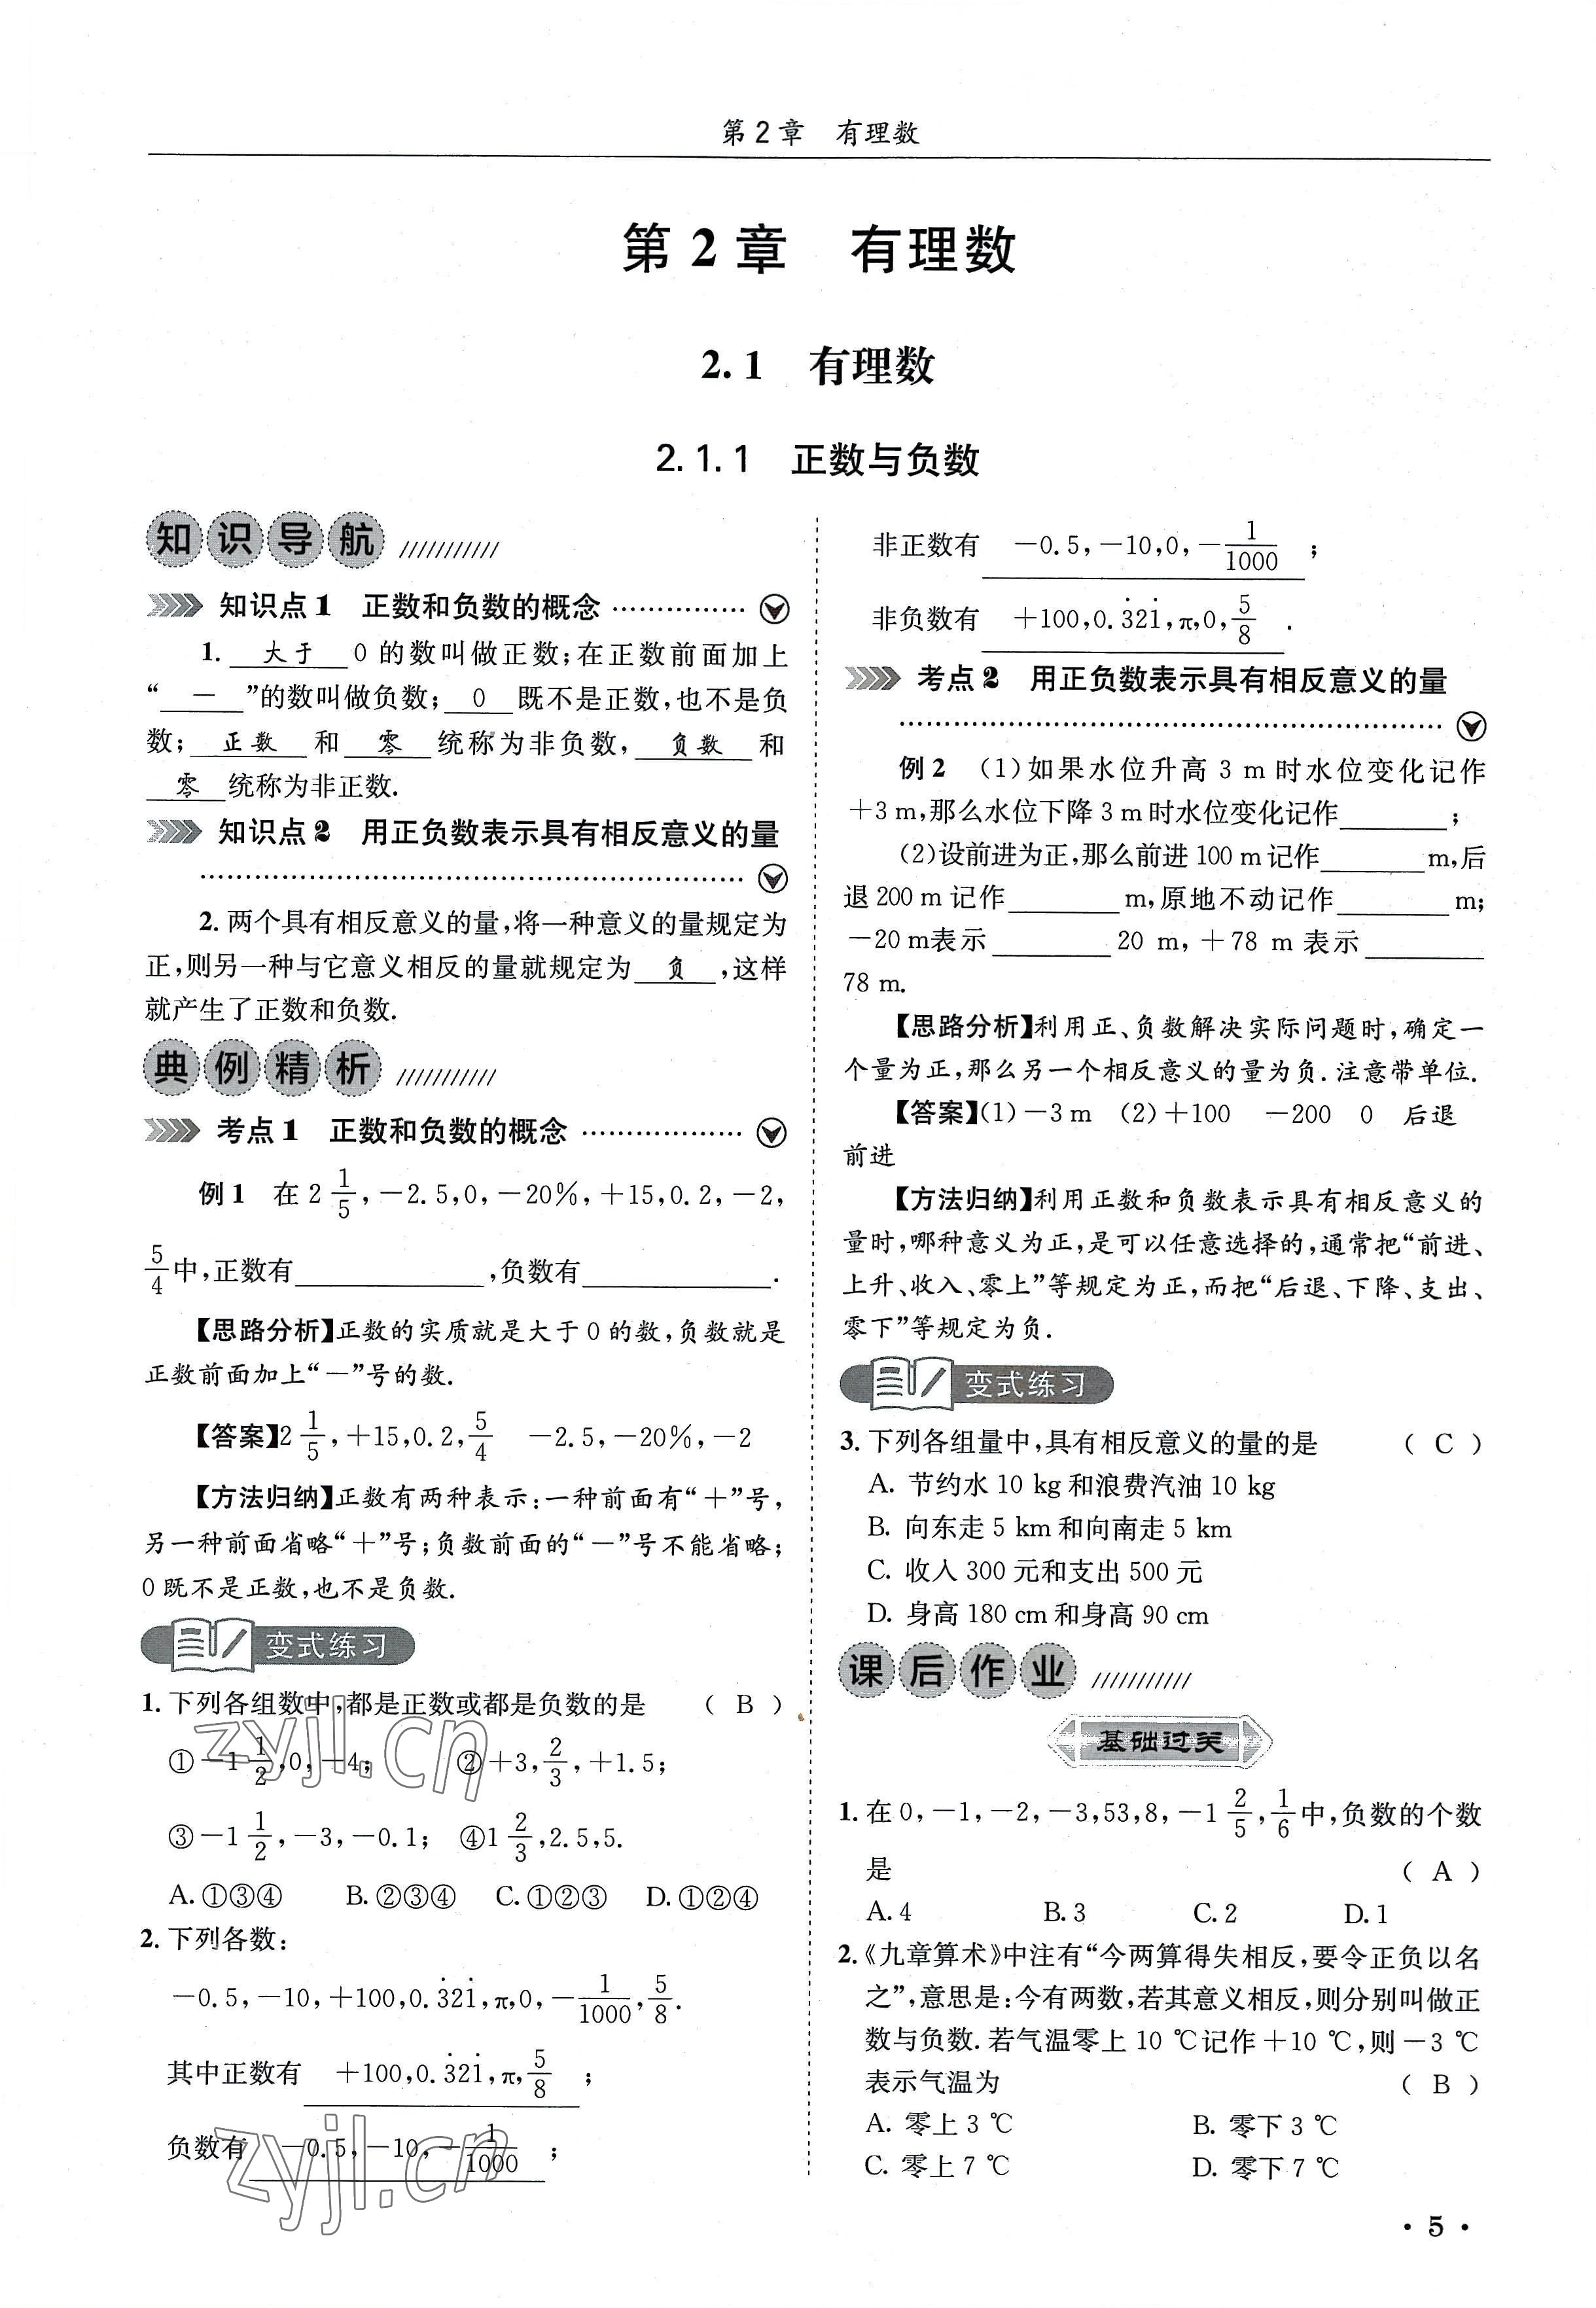 第2章 有理数
第2章 有理数
2.1 有理数
2.1.1 正数与负数
知识导航
知识点1 正数和负数的概念
1. 大于 0的数叫做正数;在正数前面加上
“ － ”的数叫做负数; 0 既不是正数,也不是负
数; 正数 和 零 统称为非负数, 负数 和
零 统称为非正数.
知识点2 用正负数表示具有相反意义的量
2.两个具有相反意义的量,将一种意义的量规定为
正,则另一种与它意义相反的量就规定为 负 ,这样
就产生了正数和负数.
典例精析
考点1 正数和负数的概念
例1 在2 1/5,－2.5,0,－20%,＋15,0.2,－2,
5/4中,正数有________,负数有________.
【思路分析】正数的实质就是大于0的数,负数就是
正数前面加上“－”号的数.
【答案】2 1/5,＋15,0.2,5/4 －2.5,－20%,－2
【方法归纳】正数有两种表示:一种前面有“＋”号,
另一种前面省略“＋”号;负数前面的“－”号不能省略;
0既不是正数,也不是负数.
变式练习
1.下列各组数中,都是正数或都是负数的是 ( B )
①－1 1/2,0,－4; ②＋3,2/3,＋1.5;
③－1 1/2,－3,－0.1; ④1 2/3,2.5,5.
A.①③④ B.②③④ C.①②③ D.①②④
2.下列各数:
－0.5,－10,＋100,0.3̇21̇,π,0,－1/1000,5/8.
其中正数有 ＋100,0.3̇21̇,π,5/8 ;
负数有 －0.5,－10,－1/1000 ;
非正数有 －0.5,－10,0,－1/1000 ;
非负数有 ＋100,0.3̇21̇,π,0,5/8 .
考点2 用正负数表示具有相反意义的量
例2 (1)如果水位升高3 m时水位变化记作
＋3 m,那么水位下降3 m时水位变化记作________;
(2)设前进为正,那么前进100 m记作________m,后
退200 m记作________m,原地不动记作________m;
－20 m表示________20 m,＋78 m表示________
78 m.
【思路分析】利用正、负数解决实际问题时,确定一
个量为正,那么另一个相反意义的量为负.注意带单位.
【答案】(1)－3 m (2)＋100 －200 0 后退
前进
【方法归纳】利用正数和负数表示具有相反意义的
量时,哪种意义为正,是可以任意选择的,通常把“前进、
上升、收入、零上”等规定为正,而把“后退、下降、支出、
零下”等规定为负.
变式练习
3.下列各组量中,具有相反意义的量的是 ( C )
A. 节约水10 kg和浪费汽油10 kg
B. 向东走5 km和向南走5 km
C. 收入300元和支出500元
D. 身高180 cm和身高90 cm
课后作业
基础过关
1.在0,－1,－2,－3,53,8,－1 2/5,1/6中,负数的个数
是 ( A )
A.4 B.3 C.2 D.1
2.《九章算术》中注有“今两算得失相反,要令正负以名
之”,意思是:今有两数,若其意义相反,则分别叫做正
数与负数.若气温零上10 ℃记作＋10 ℃,则－3 ℃
表示气温为 ( B )
A. 零上3 ℃ B. 零下3 ℃
C. 零上7 ℃ D. 零下7 ℃
· 5 ·
zyjl.cn
zyjl.cn